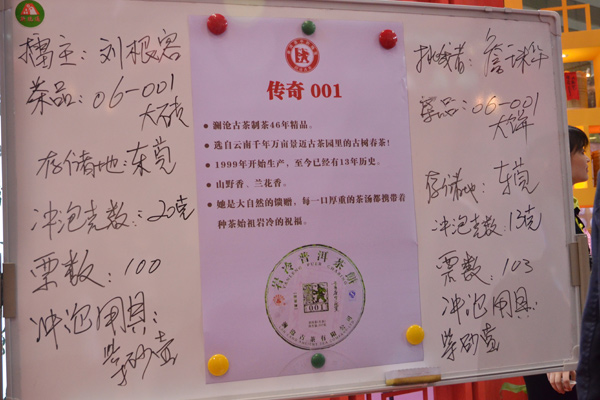 擂主：刘极客
茶品：06-001
大砖
存储地：东莞
冲泡克数：20克
票数：100
冲泡用具：
紫砂壶
传奇 001
● 澜沧古茶制茶46年精品。
● 选自云南千年万亩景迈古茶园里的古树春茶！
● 1999年开始生产，至今已经有13年历史。
● 山野香、兰花香。
● 她是大自然的馈赠，每一口厚重的茶汤都携带着
种茶始祖岩冷的祝福。
岩冷普洱茶饼
001
挑战者：詹球华
茶品：06-001
大饼
存储地：东莞
冲泡克数：13克
票数：103
冲泡用具：
紫砂壶